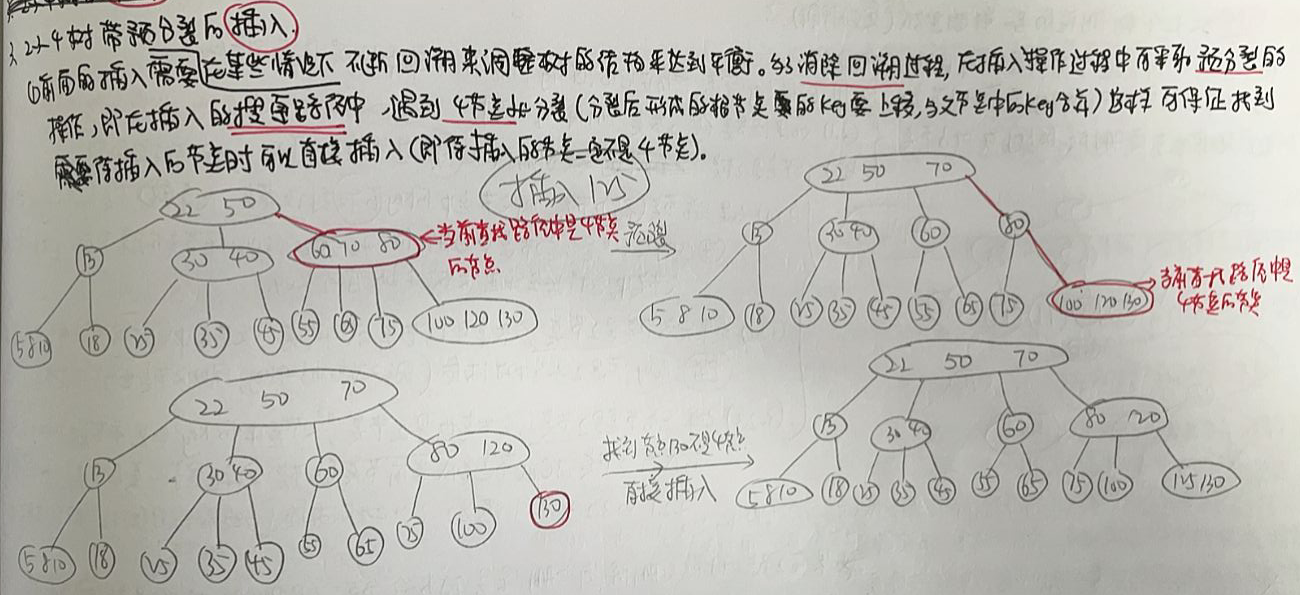 2-3-4树带预分裂的插入.
(1)前面的插入需要在某些情况下不断回溯来调整树的结构来达到平衡。为消除回溯过程,在插入操作过程中可采取预分裂的
操作,即在插入的搜索路径中,遇到4节点就分裂(分裂后形成的根节点的key要上移,与父节点中的key合并)这样可保证找到
需要待插入的节点时可以直接插入(即待插入的节点一定不是4节点)。
插入125
22 50
13
30 40
60 70 80
←当前查找路径中是4节点
的节点
5 8 10
18
25
35
45
55
65
75
100 120 130
22 50 70
13
30 40
60
80
5 8 10
18
25
35
45
55
65
75
100 120 130
当前查找路径中是
4节点的节点
22 50 70
13
30 40
60
80 120
5 8 10
18
25
35
45
55
65
75
100
130
找到节点130不是4节点
直接插入
22 50 70
13
30 40
60
80 120
5 8 10
18
25
35
45
55
65
75
100
125 130